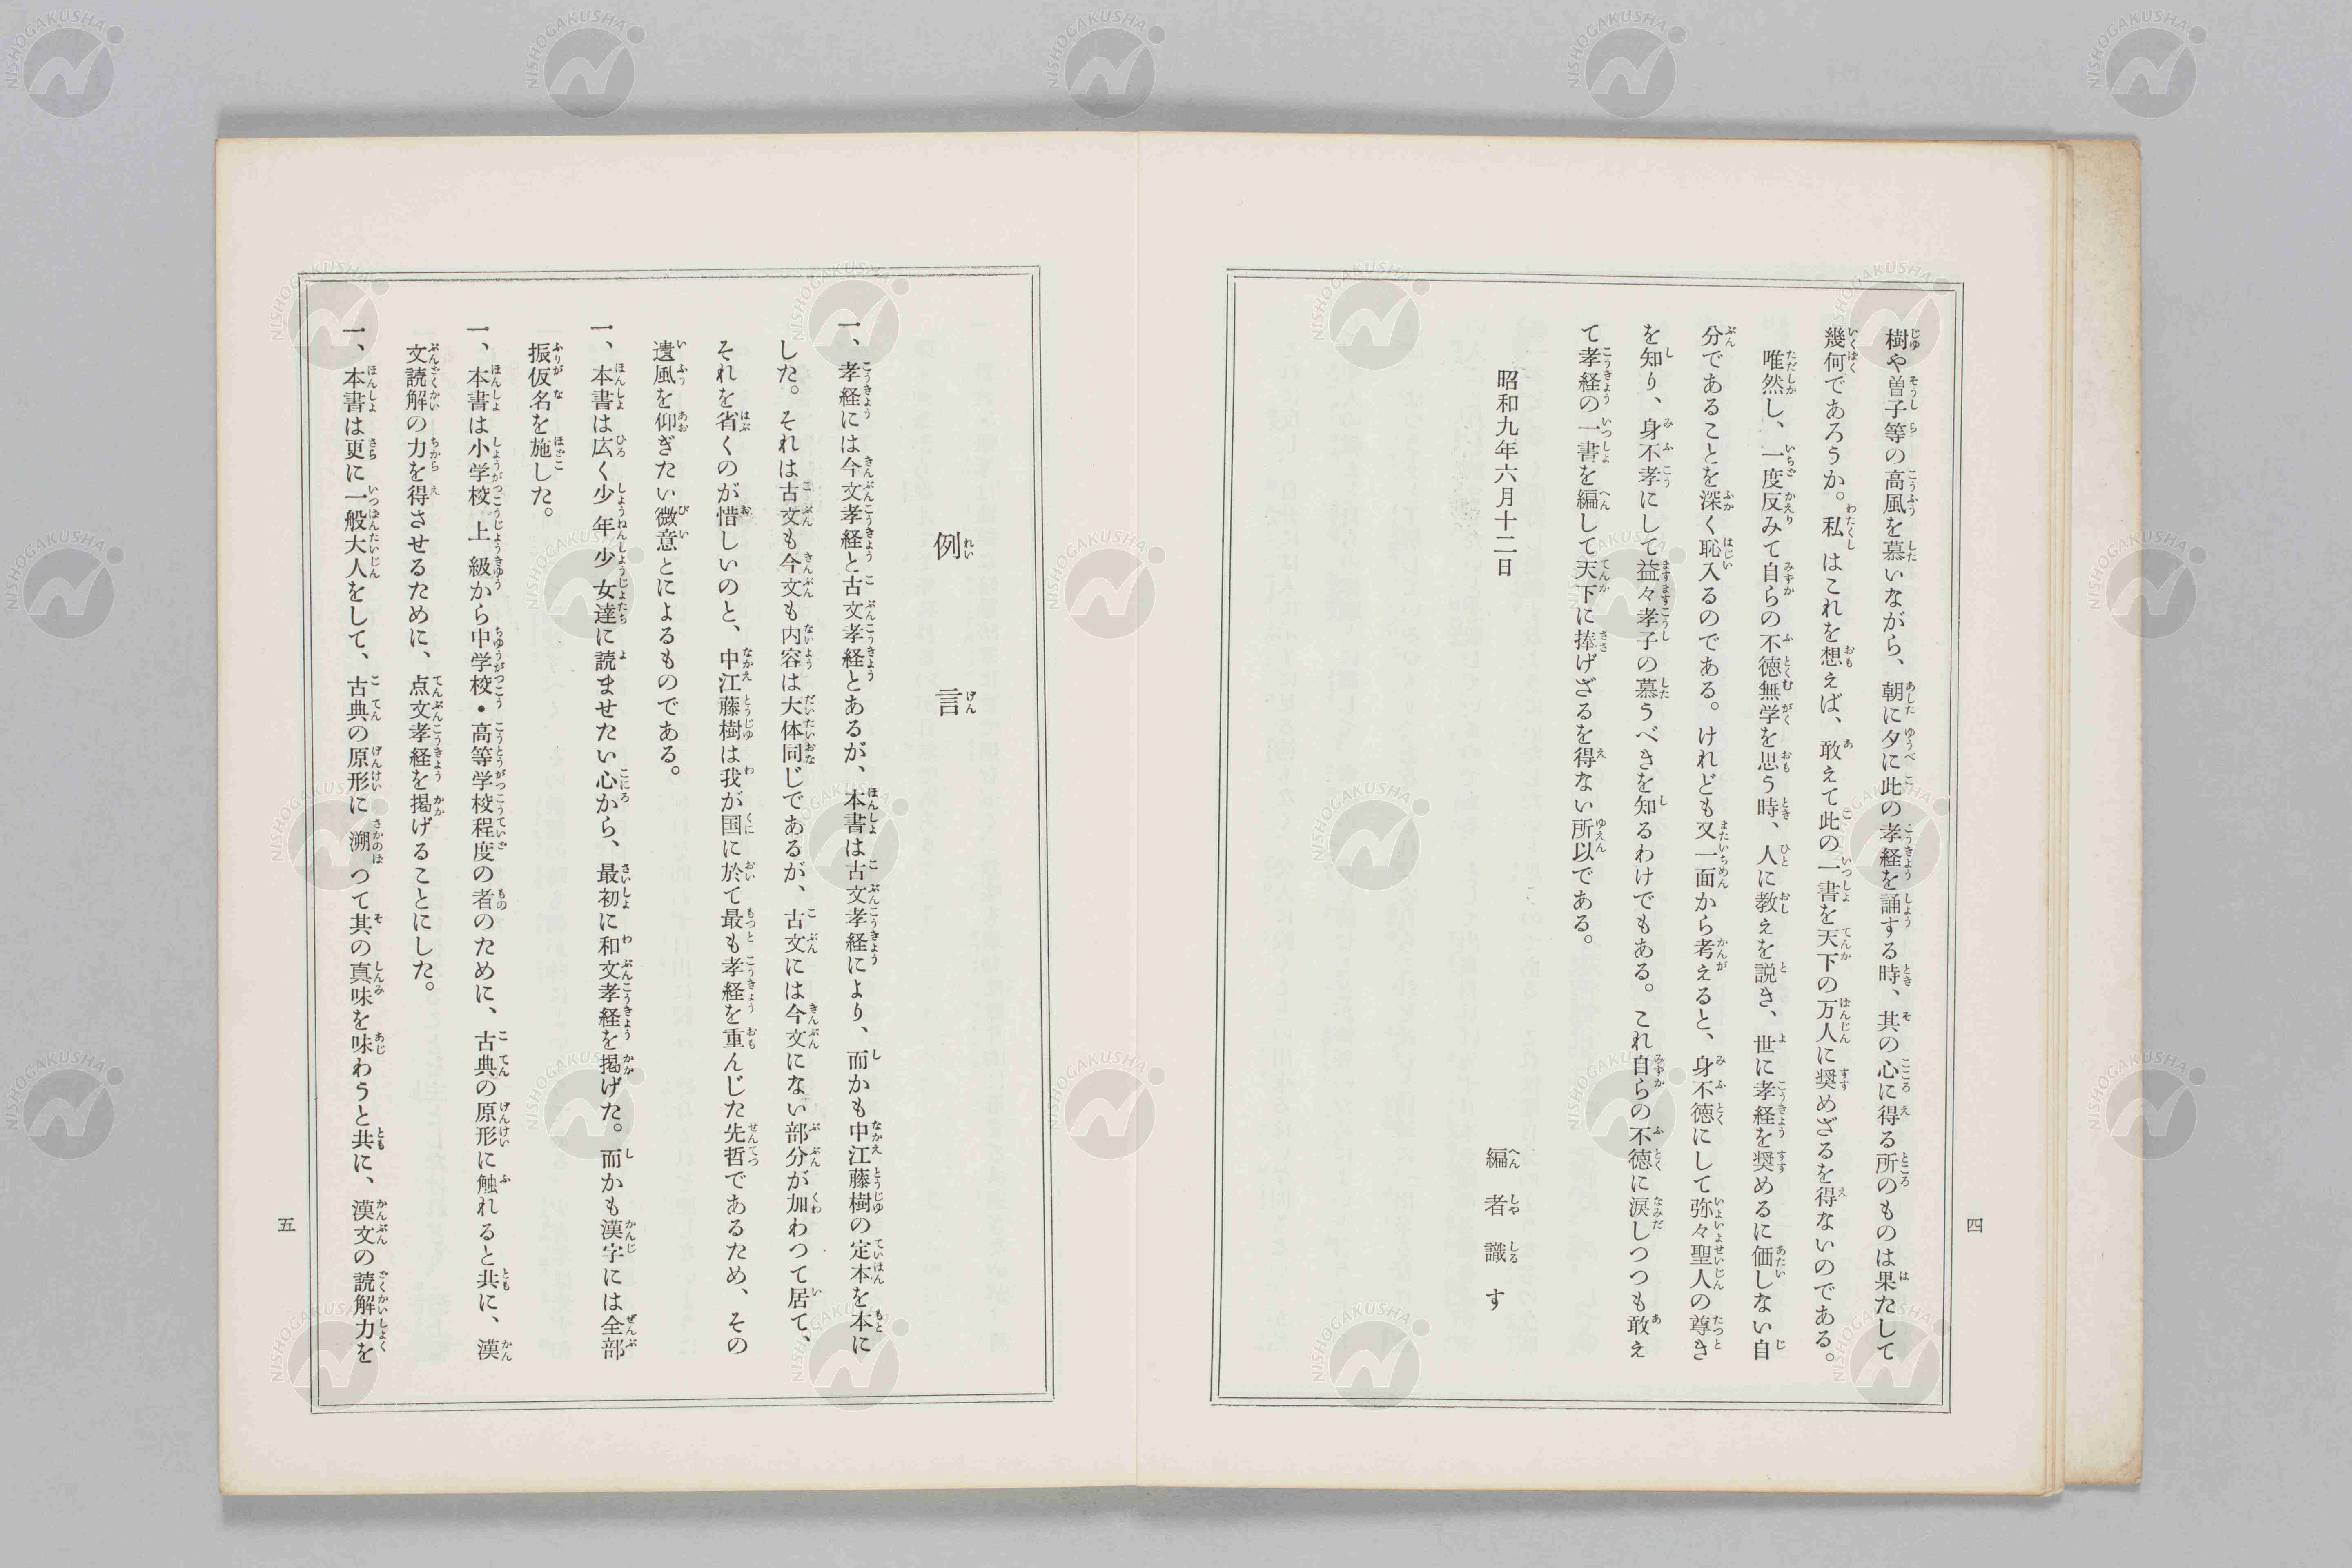 樹や曽子等の高風を慕いながら、朝に夕に此の孝経を誦する時、其の心に得る所のものは果たして
幾何であろうか。私はこれを想えば、敢えて此の一書を天下の万人に奨めざるを得ないのである。
唯然し、一度反みて自らの不徳無学を思う時、人に教えを説き、世に孝経を奨めるに価しない自
分であることを深く恥入るのである。けれども又一面から考えると、身不徳にして弥々聖人の尊き
を知り、身不孝にして益々孝子の慕うべきを知るわけでもある。これ自らの不徳に涙しつつも敢え
て孝経の一書を編して天下に捧げざるを得ない所以である。
昭和九年六月十二日
編者識す
四
例言
一、孝経には今文孝経と古文孝経とあるが、本書は古文孝経により、而かも中江藤樹の定本を本に
した。それは古文も今文も内容は大体同じであるが、古文には今文にない部分が加わつて居て、
それを省くのが惜しいのと、中江藤樹は我が国に於て最も孝経を重んじた先哲であるため、その
遺風を仰ぎたい微意とによるものである。
一、本書は広く少年少女達に読ませたい心から、最初に和文孝経を掲げた。而かも漢字には全部
振仮名を施した。
一、本書は小学校上級から中学校・高等学校程度の者のために、古典の原形に触れると共に、漢
文読解の力を得させるために、点文孝経を掲げることにした。
一、本書は更に一般大人をして、古典の原形に溯つて其の真味を味わうと共に、漢文の読解力を
五
NISHOGAKUSHA